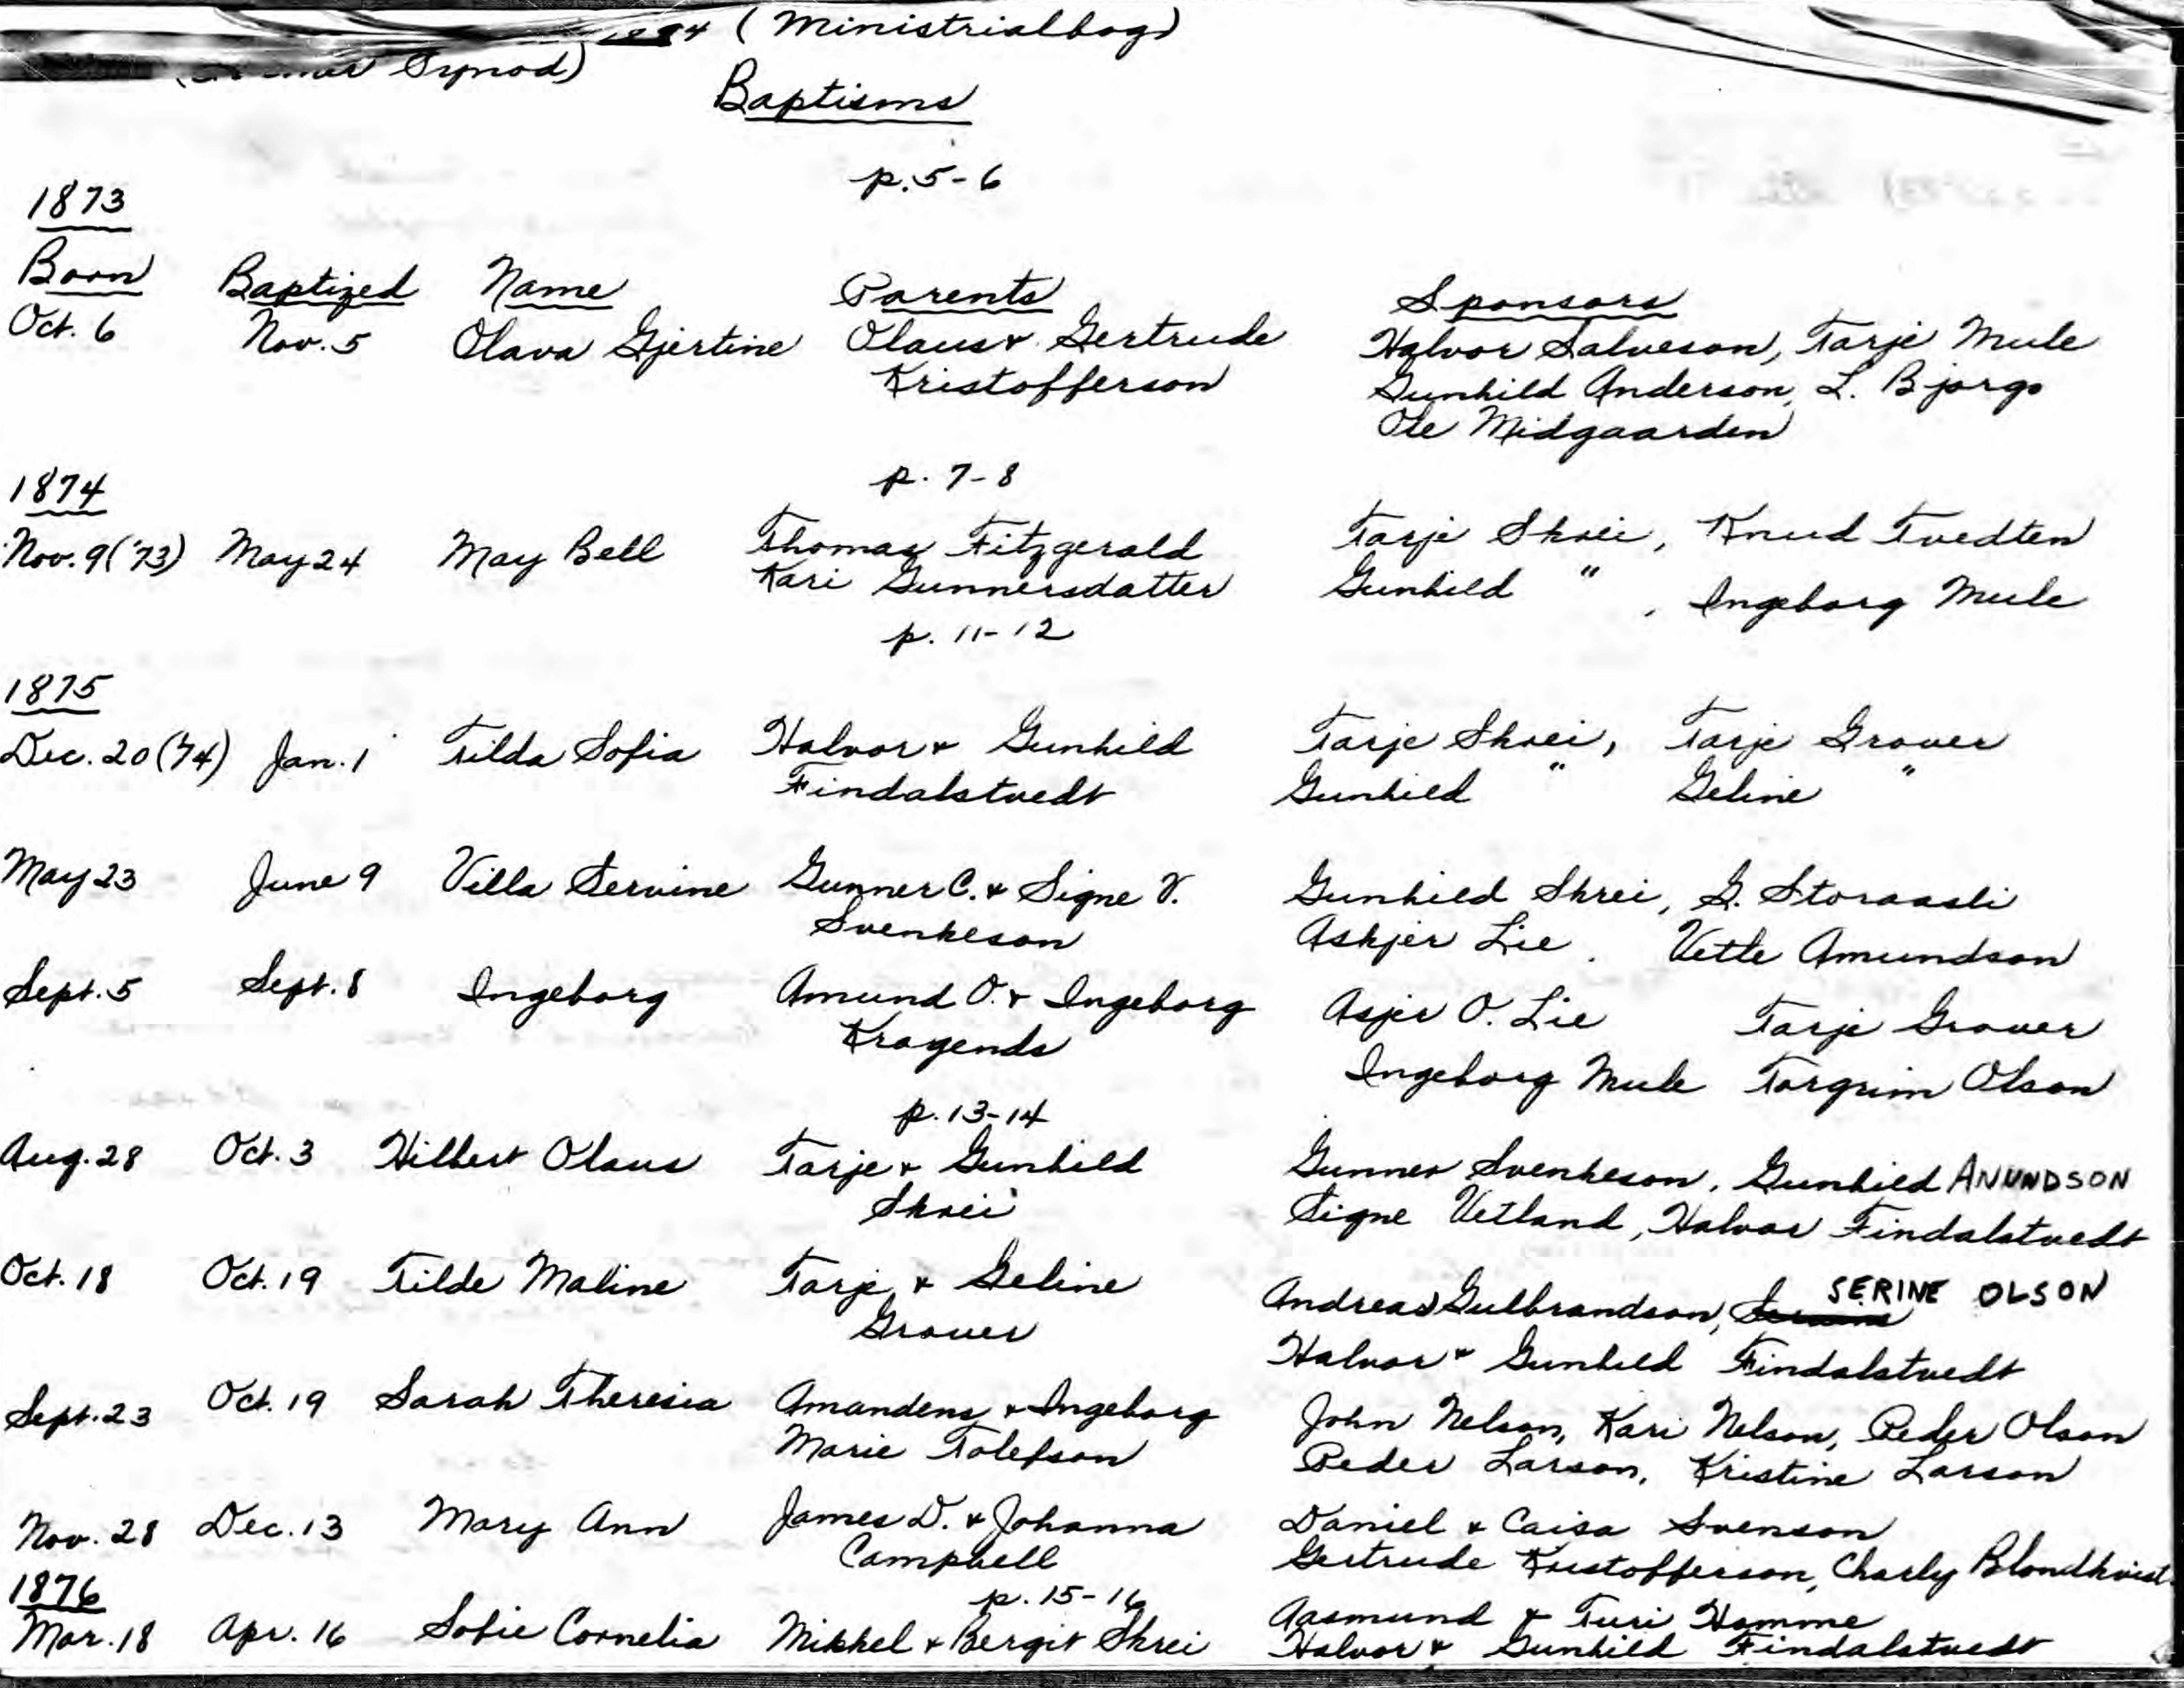 (Ministrialbog)
Synod)
Baptisms
p. 5-6
1873
Born Baptized Name Parents Sponsors
Oct. 6 Nov. 5 Olava Gjertine Olaus & Gertrude Halvor Salveson, Tarje Mule
Kristofferson Gunhild Anderson, L. Bjorgo
Ole Midgaarden
p. 7-8
1874
Nov. 9 ('73) May 24 May Bell Thomas Fitzgerald Tarje Skrei, Knud Tvedten
Kari Gunnersdatter Gunhild " , Ingeborg Mule
p. 11-12
1875
Dec. 20 ('74) Jan. 1 Tilda Sofia Halvor & Gunhild Tarje Skrei, Tarje Grover
Findalstvedt Gunhild " Geline "
May 23 June 9 Villa Servine Gunner C. & Signe V. Gunhild Skrei, G. Storaasli
Svenkeson Askjer Lie . Vetle Amundson
Sept. 5 Sept. 8 Ingeborg Amund O. & Ingeborg Asjer O. Lie Tarje Grover
Kragends Ingeborg Mule Torgrim Olson
p. 13-14
Aug. 28 Oct. 3 Hilbert Olaus Tarje & Gunhild Gunner Svenkeson, Gunhild ANUNDSON
Skrei Signe Vetland, Halvor Findalstvedt
Oct. 18 Oct. 19 Tilde Maline Tarje & Geline Andreas Gulbrandson, SERINE OLSON
Grover Halvor & Gunhild Findalstvedt
Sept. 23 Oct. 19 Sarah Theresia Amandens & Ingeborg John Nelson, Kari Nelson, Peder Olson
Marie Tolefson Peder Larson, Kristine Larson
Nov. 28 Dec. 13 Mary Ann James D. & Johanna Daniel & Caisa Svenson
Campbell Gertrude Kristofferson, Charly Blondkvist
1876
p. 15-16
Mar. 18 Apr. 16 Sofie Cornelia Mikkel & Bergit Skrei Aasmund & Turi Homme
Halvor & Gunhild Findalstvedt